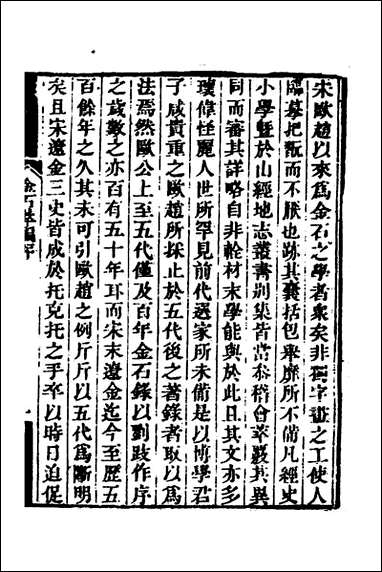 宋歐趙以來爲金石之學者衆矣非獨字畫之工使人
臨摹把翫而不厭也跡其囊括包舉靡所不備凡經史
小學暨於山經地志叢書别集皆當叅稽會萃覈其異
同而審其詳略自非輇材末學能與於此且其文亦多
瓌偉怪麗人世所罕見前代選家所未備是以博學君
子咸貴重之歐趙所採止於五代後之著錄者取以爲
法焉然歐公上至五代僅及百年金石錄以劉跂作序
之歲數之亦百有五十年耳而宋末遼金迄今至歷五
百餘年之久其未可引歐趙之例斤斤以五代爲斷明
矣且宋遼金三史皆成於托克托之手卒以時日迫促
金石萃編序
一